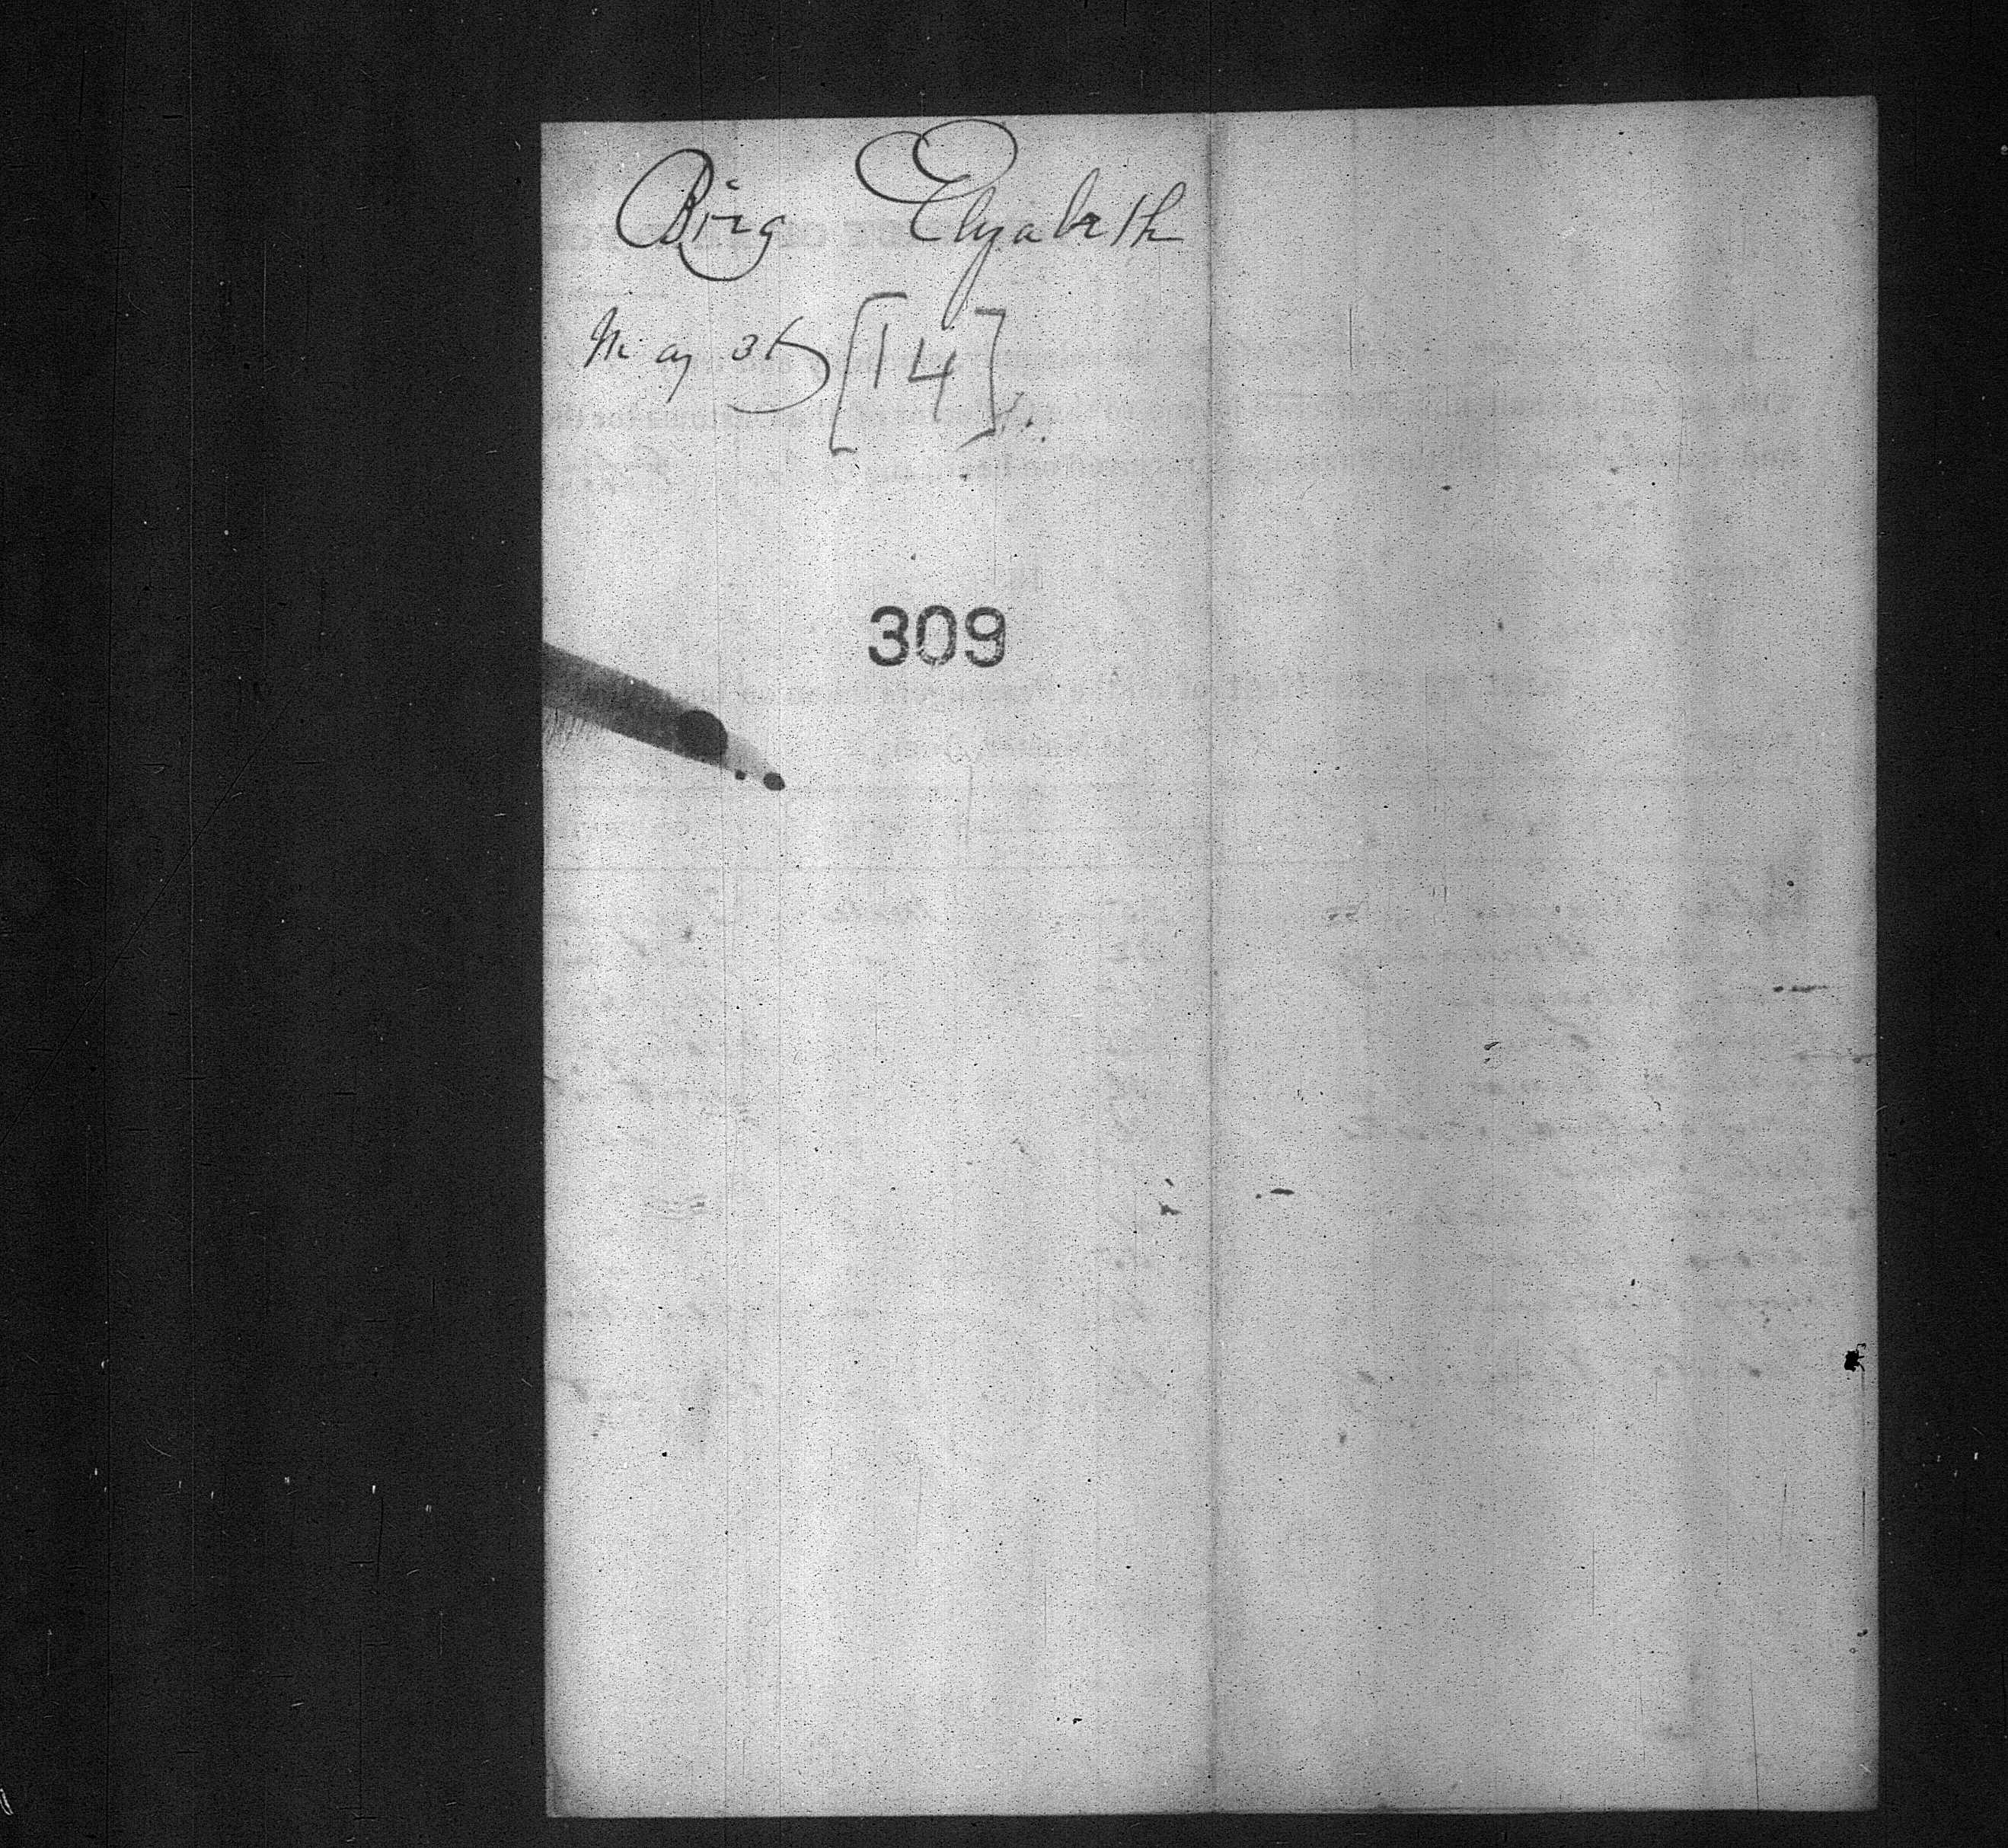 Brig Elizabeth
May 31 [14]
309